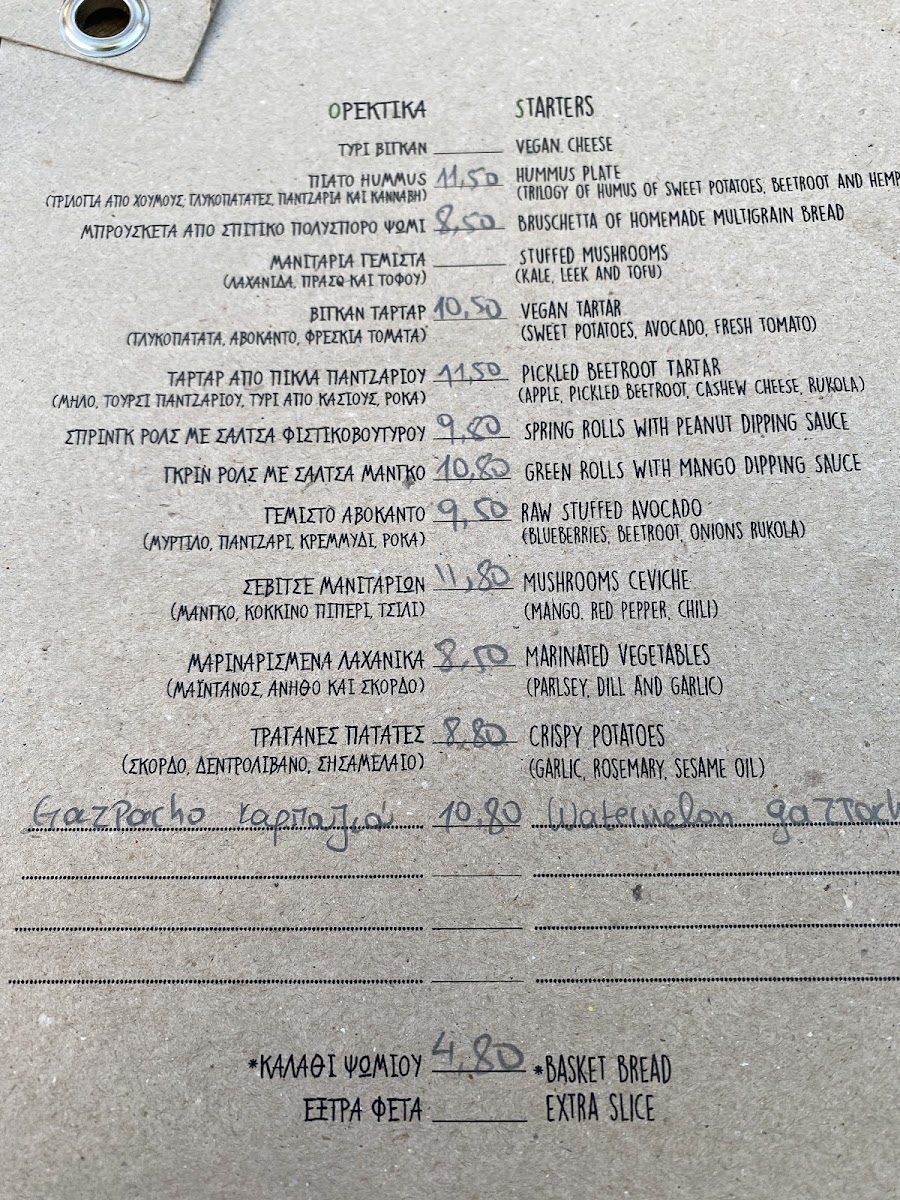 ΟΡΕΚΤΙΚΑ STARTERS
ΤΥΡΙ ΒΙΓΚΑΝ VEGAN CHEESE
ΠΙΑΤΟ HUMMUS 11,50 HUMMUS PLATE
(ΤΡΙΛΟΓΙΑ ΑΠΟ ΧΟΥΜΟΥΣ, ΓΛΥΚΟΠΑΤΑΤΕΣ, ΠΑΝΤΖΑΡΙΑ ΚΑΙ ΚΑΝΝΑΒΗ) (TRILOGY OF HUMUS OF SWEET POTATOES, BEETROOT AND HEMP
ΜΠΡΟΥΣΚΕΤΑ ΑΠΟ ΣΠΙΤΙΚΟ ΠΟΛΥΣΠΟΡΟ ΨΩΜΙ 8,50 BRUSCHETTA OF HOMEMADE MULTIGRAIN BREAD
ΜΑΝΙΤΑΡΙΑ ΓΕΜΙΣΤΑ STUFFED MUSHROOMS
(ΛΑΧΑΝΙΔΑ, ΠΡΑΣΟ ΚΑΙ ΤΟΦΟΥ) (KALE, LEEK AND TOFU)
ΒΙΓΚΑΝ ΤΑΡΤΑΡ 10,50 VEGAN TARTAR
(ΓΛΥΚΟΠΑΤΑΤΑ, ΑΒΟΚΑΝΤΟ, ΦΡΕΣΚΙΑ ΤΟΜΑΤΑ) (SWEET POTATOES, AVOCADO, FRESH TOMATO)
ΤΑΡΤΑΡ ΑΠΟ ΠΙΚΛΑ ΠΑΝΤΖΑΡΙΟΥ 11,50 PICKLED BEETROOT TARTAR
(ΜΗΛΟ, ΤΟΥΡΣΙ ΠΑΝΤΖΑΡΙΟΥ, ΤΥΡΙ ΑΠΟ ΚΑΣΙΟΥΣ, ΡΟΚΑ) (APPLE, PICKLED BEETROOT, CASHEW CHEESE, RUKOLA)
ΣΠΡΙΝΓΚ ΡΟΛΣ ΜΕ ΣΑΛΤΣΑ ΦΙΣΤΙΚΟΒΟΥΤΥΡΟΥ 9,80 SPRING ROLLS WITH PEANUT DIPPING SAUCE
ΓΚΡΙΝ ΡΟΛΣ ΜΕ ΣΑΛΤΣΑ ΜΑΝΓΚΟ 10,80 GREEN ROLLS WITH MANGO DIPPING SAUCE
ΓΕΜΙΣΤΟ ΑΒΟΚΑΝΤΟ 9,50 RAW STUFFED AVOCADO
(ΜΥΡΤΙΛΟ, ΠΑΝΤΖΑΡΙ, ΚΡΕΜΜΥΔΙ, ΡΟΚΑ) (BLUEBERRIES, BEETROOT, ONIONS RUKOLA)
ΣΕΒΙΤΣΕ ΜΑΝΙΤΑΡΙΩΝ 11,80 MUSHROOMS CEVICHE
(ΜΑΝΓΚΟ, ΚΟΚΚΙΝΟ ΠΙΠΕΡΙ, ΤΣΙΛΙ) (MANGO. RED PEPPER, CHILI)
ΜΑΡΙΝΑΡΙΣΜΕΝΑ ΛΑΧΑΝΙΚΑ 8,50 MARINATED VEGETABLES
(ΜΑΪΝΤΑΝΟΣ, ΑΝΗΘΟ ΚΑΙ ΣΚΟΡΔΟ) (PARLSEY, DILL AND GARLIC)
ΤΡΑΓΑΝΕΣ ΠΑΤΑΤΕΣ 8,80 CRISPY POTATOES
(ΣΚΟΡΔΟ, ΔΕΝΤΡΟΛΙΒΑΝΟ, ΣΗΣΑΜΕΛΑΙΟ) (GARLIC, ROSEMARY, SESAME OIL)
Gazpacho καρπούζι 10,80 Watermelon gazpach
*ΚΑΛΑΘΙ ΨΩΜΙΟΥ 4,80 *BASKET BREAD
ΕΞΤΡΑ ΦΕΤΑ EXTRA SLICE